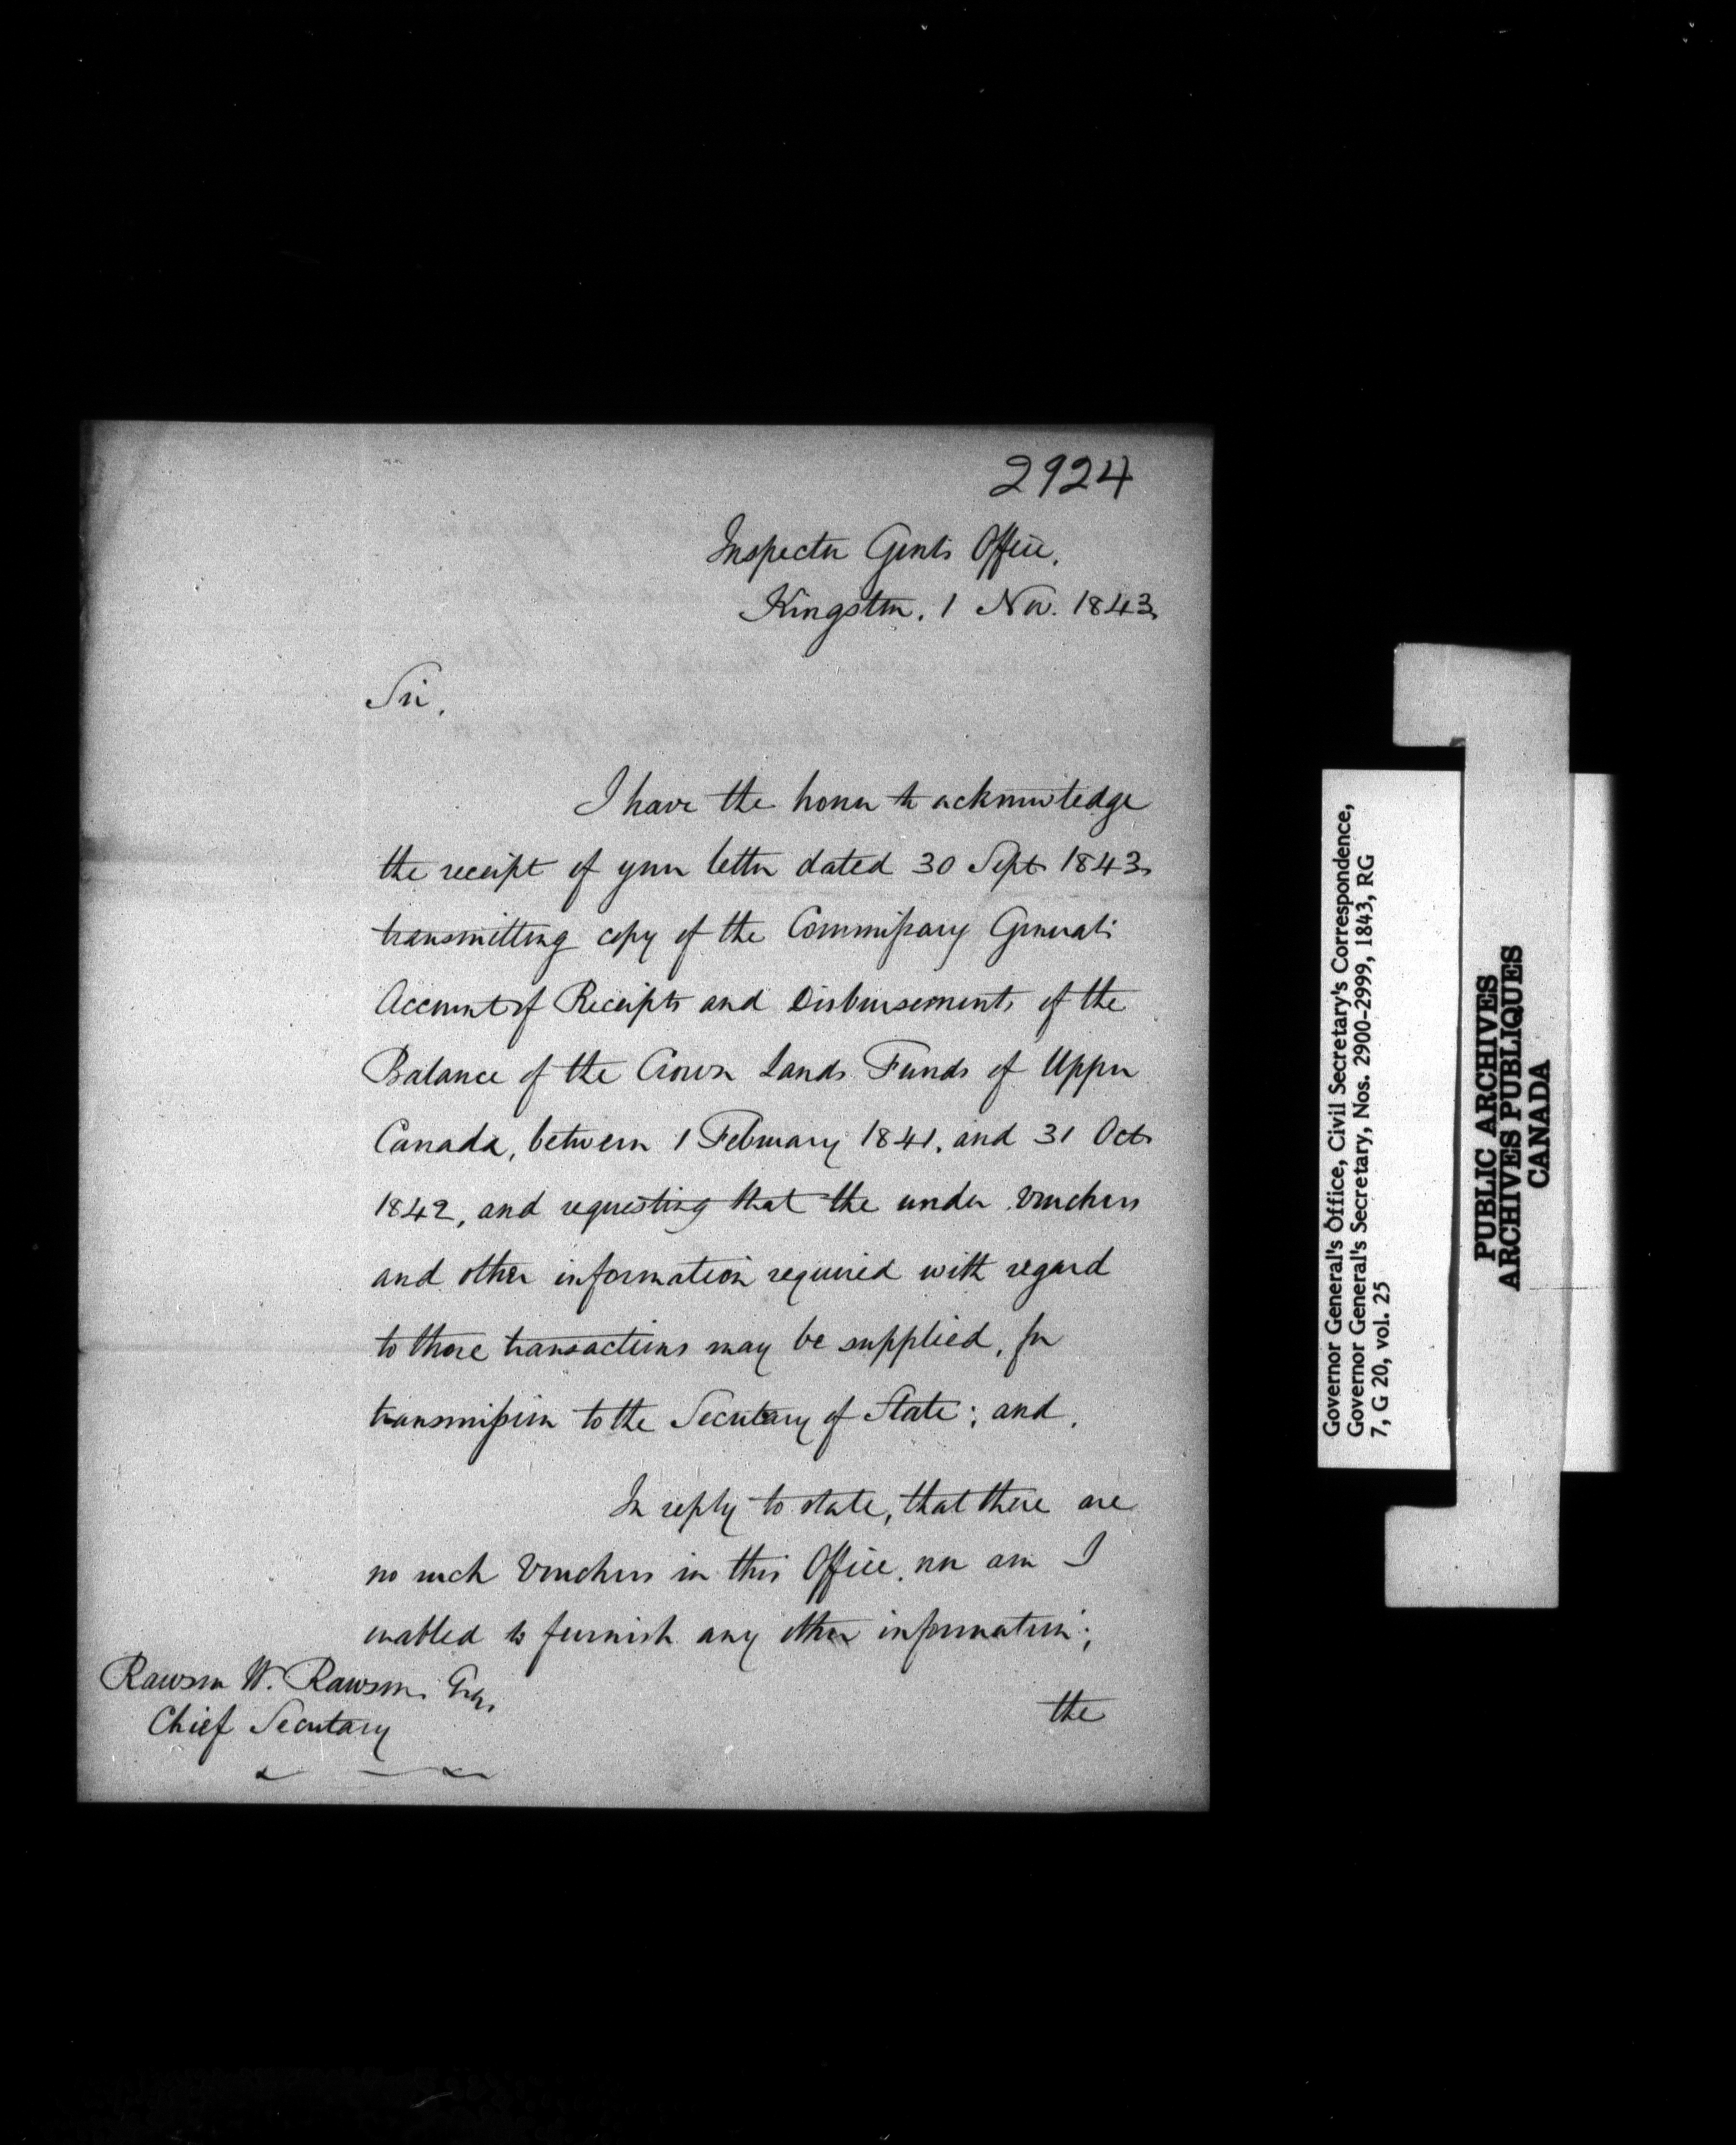 2924
Inspector Genl's Office,
Kingston, 1 Nov. 1843,
Sir,
I have the honor to acknowledge
the receipt of your letter dated 30 Sept 1843
transmitting copy of the Commissary General's
Account of Receipts and Disbursements of the
Balance of the Crown Lands Funds of Upper
Canada, between 1 February 1841, and 31 Oct
1842, and requesting that the under vouchers
and other information required with regard
to those transactions may be supplied, for
transmission to the Secretary of State; and,
In reply to state, that there are
no such Vouchers in this Office, nor am I
enabled to furnish any other information;
Rawson W. Rawson, Esqr,
Chief Secretary
the
Governor General's Office, Civil Secretary's Correspondence,
Governor General's Secretary, Nos. 2900-2999, 1843, RG
7, G 20, vol. 25
PUBLIC ARCHIVES
ARCHIVES PUBLIQUES
CANADA